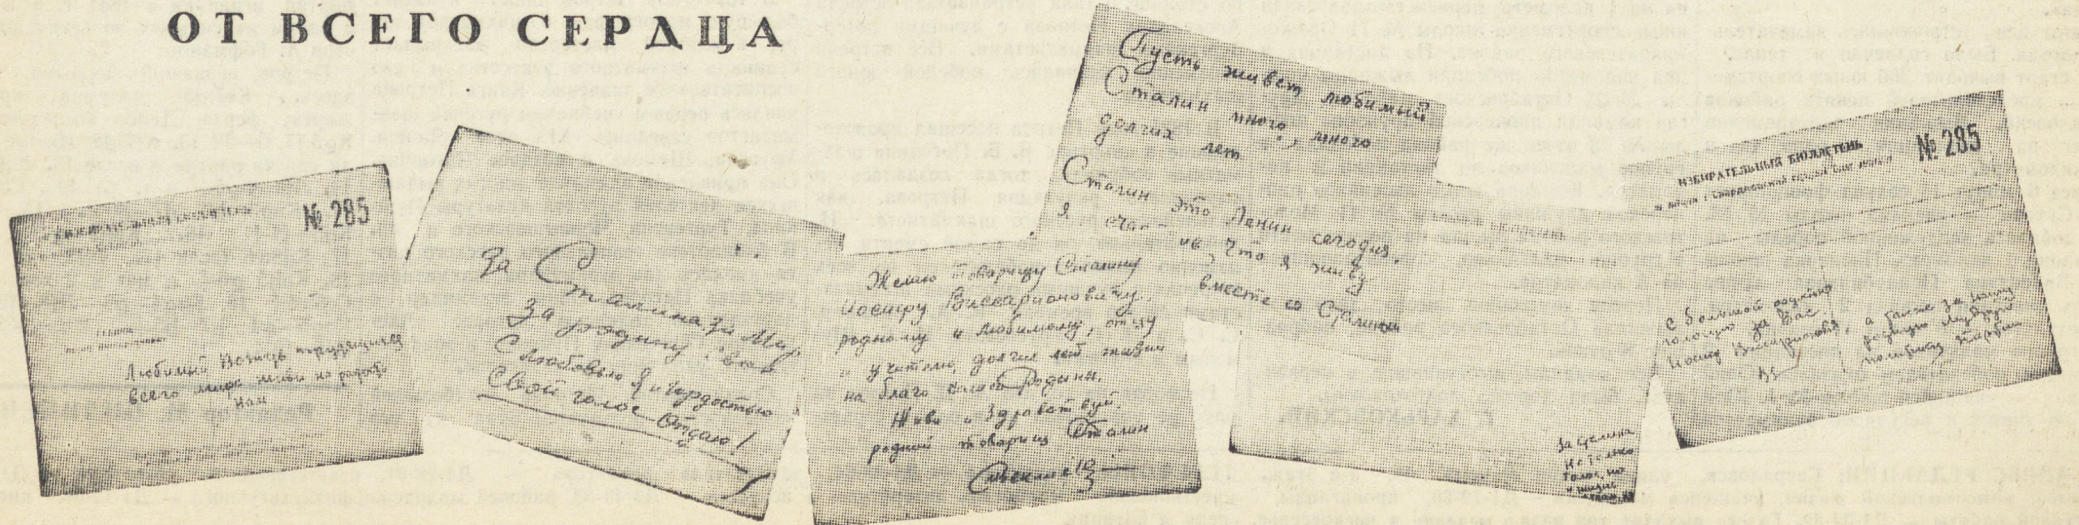 ОТ ВСЕГО СЕРДЦА
ИЗБИРАТЕЛЬНЫЙ БЮЛЛЕТЕНЬ
№ 285
Любимый Вождь трудящихся
всего мира живи на радость
нам
За Сталина, за Мир
За родину свою
С Любовью Я и гордостью
Свой голос Отдаю!
Желаю товарищу Сталину
Иосифу Виссарионовичу,
родному и любимому, отцу
и учителю, долгих лет жизни
на благо нашей Родины.
Живи и Здравствуй,
родной товарищ Сталин
Пусть живет любимый
Сталин много, много
долгих лет
Сталин это Ленин сегодня.
Я счастлив, что я живу
вместе со Сталиным
За Сталина
не только
голос, но
и жизнь
ИЗБИРАТЕЛЬНЫЙ БЮЛЛЕТЕНЬ
№ 285
С большой радостью
голосую за Вас
Иосиф Виссарионович, а также за нашу
родную мудрую
политику партии